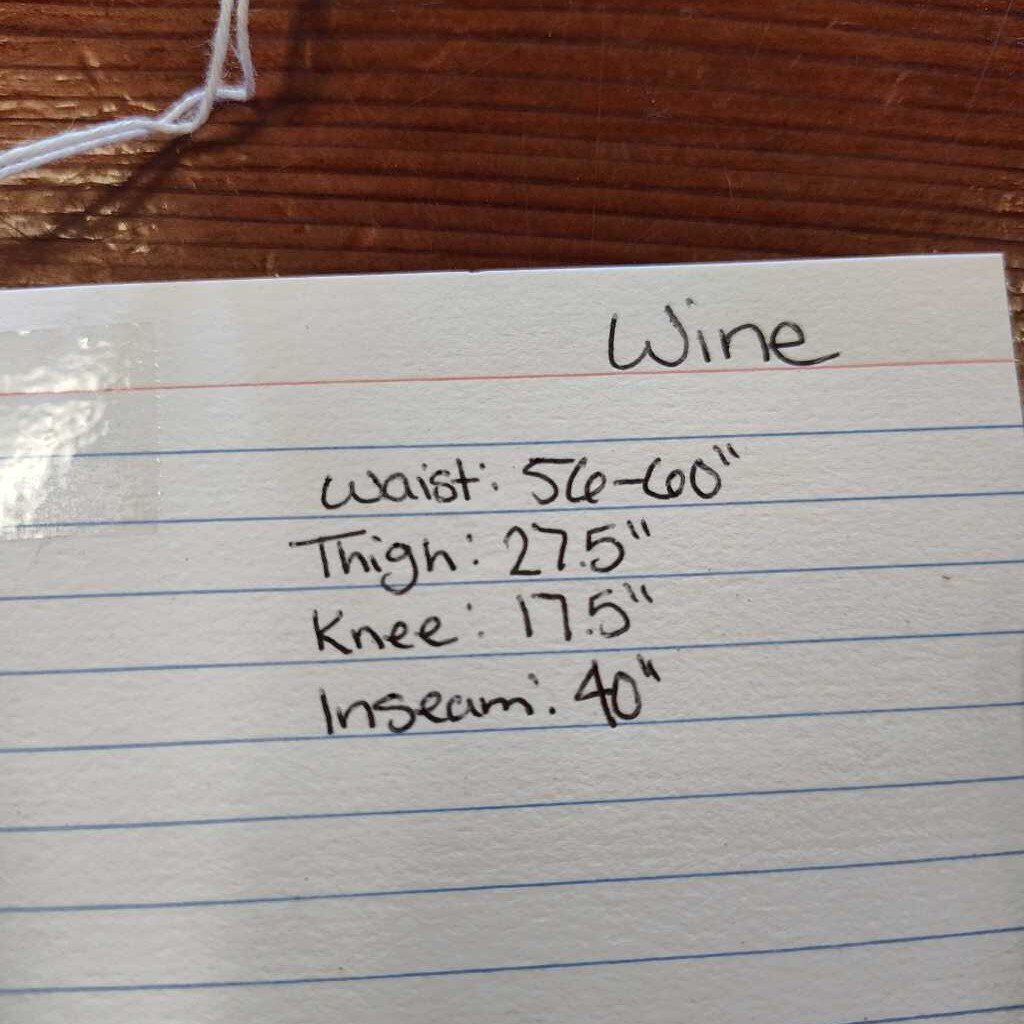 Wine
Waist: 56-60"
Thigh: 27.5"
Knee: 17.5"
Inseam: 40"